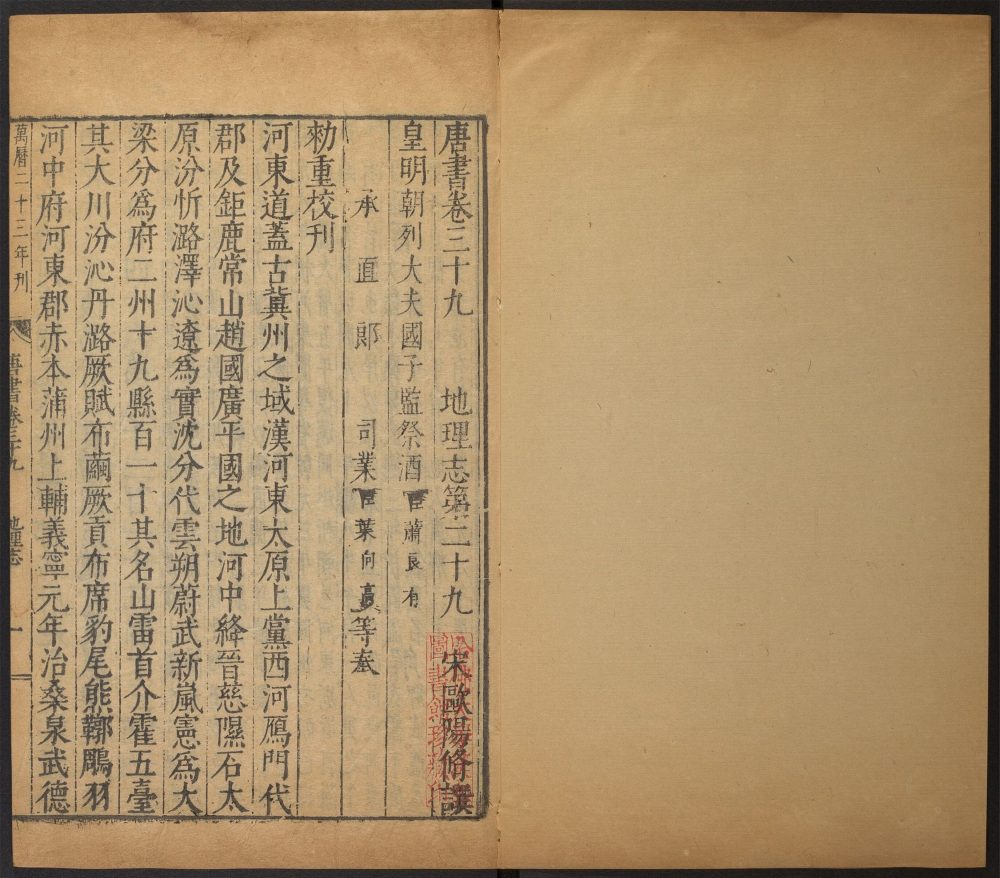 唐書卷三十九 地理志第二十九 宋歐陽脩譔
皇明朝列大夫國子監祭酒臣蕭良有
承直郎司業臣葉向高等奉
勑重校刊
河東道蓋古冀州之域漢河東太原上黨西河鴈門代
郡及鉅鹿常山趙國廣平國之地河中絳晉慈隰石太
原汾忻潞澤沁遼爲實沈分代雲朔蔚武新嵐憲爲大
梁分爲府二州十九縣百一十其名山雷首介霍五臺
其大川汾沁丹潞厥賦布繭厥貢布席豹尾熊鞹鵰羽
河中府河東郡赤本蒲州上輔義寧元年治桑泉武德
萬曆二十三年刊
唐書卷三十九
地理志
一